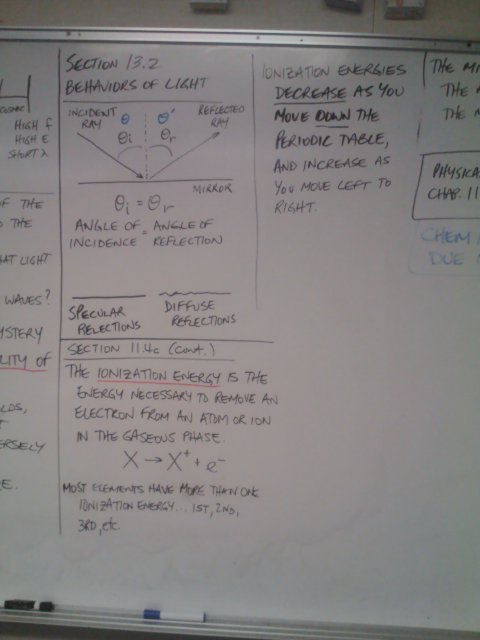 COSMIC
HIGH f
HIGH E
SHORT λ
OF THE
THE
THAT LIGHT
WAVES?
MYSTERY
LITY OF
LDS,
ERSELY
E.
SECTION 13.2
BEHAVIORS OF LIGHT
INCIDENT RAY
θ θ'
REFLECTED RAY
θi θr
MIRROR
θi = θr
ANGLE OF INCIDENCE = ANGLE OF REFLECTION
SPECULAR RELECTIONS
DIFFUSE REFLECTIONS
SECTION 11.4c (CONT.)
THE IONIZATION ENERGY IS THE
ENERGY NECESSARY TO REMOVE AN
ELECTRON FROM AN ATOM OR ION
IN THE GASEOUS PHASE.
X → X⁺ + e⁻
MOST ELEMENTS HAVE MORE THAN ONE
IONIZATION ENERGY... 1ST, 2ND,
3RD, etc.
IONIZATION ENERGIES
DECREASE AS YOU
MOVE DOWN THE
PERIODIC TABLE,
AND INCREASE AS
YOU MOVE LEFT TO
RIGHT.
THE MI
THE
THE
PHYSICA
CHAP. 11
CHEM
DUE